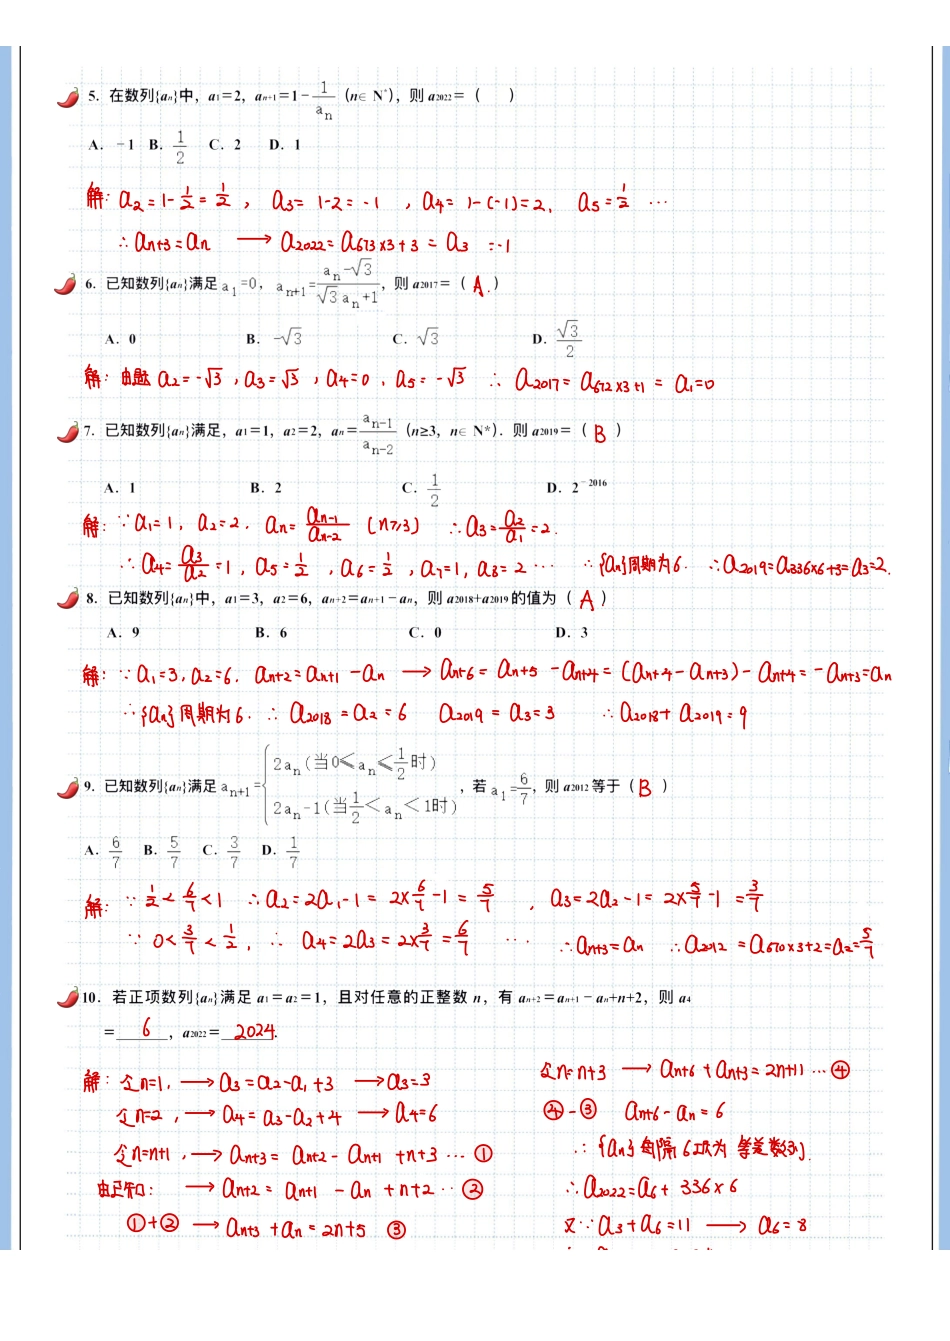 5. 在数列{aₙ}中，a₁=2，aₙ₊₁=1-1/aₙ（n∈N*），则 a₂₀₂₂=（ ）
A．-1 B．1/2 C．2 D．1
解：a₂=1-1/2=1/2，a₃=1-2=-1，a₄=1-(-1)=2，a₅=1/2 …
∴aₙ₊₃=aₙ → a₂₀₂₂=a₆₇₃ₓ₃₊₃=a₃=-1
6. 已知数列{aₙ}满足 a₁=0，aₙ₊₁=(aₙ-√3)/(√3aₙ+1)，则 a₂₀₁₇=（A.）
A．0 B．-√3 C．√3 D．√3/2
解：由题 a₂=-√3，a₃=√3，a₄=0，a₅=-√3 ∴a₂₀₁₇=a₆₇₂ₓ₃₊₁=a₁=0
7. 已知数列{aₙ}满足，a₁=1，a₂=2，aₙ=aₙ₋₁/aₙ₋₂（n≥3，n∈N*）．则 a₂₀₁₉=（B）
A．1 B．2 C．1/2 D．2⁻²⁰¹⁶
解：∵a₁=1，a₂=2．aₙ=aₙ₋₁/aₙ₋₂（n≥3）∴a₃=a₂/a₁=2．
∴a₄=a₃/a₂=1，a₅=1/2，a₆=1/2，a₇=1，a₈=2 … ∴{aₙ}周期为6．∴a₂₀₁₉=a₃₃₆ₓ₆₊₃=a₃=2．
8. 已知数列{aₙ}中，a₁=3，a₂=6，aₙ₊₂=aₙ₊₁-aₙ，则 a₂₀₁₈+a₂₀₁₉的值为（A）
A．9 B．6 C．0 D．3
解：∵a₁=3，a₂=6．aₙ₊₂=aₙ₊₁-aₙ → aₙ₊₆=aₙ₊₅-aₙ₊₄=(aₙ₊₄-aₙ₊₃)-aₙ₊₄=-aₙ₊₃=aₙ
∴{aₙ}周期为6．∴a₂₀₁₈=a₂=6 a₂₀₁₉=a₃=3 ∴a₂₀₁₈+a₂₀₁₉=9
9. 已知数列{aₙ}满足 aₙ₊₁={2aₙ(当0≤aₙ≤1/2时) 2aₙ-1(当1/2<aₙ<1时)，若 a₁=6/7，则 a₂₀₁₂等于（B）
A．6/7 B．5/7 C．3/7 D．1/7
解：∵1/2<6/7<1 ∴a₂=2a₁-1=2×6/7-1=5/7，a₃=2a₂-1=2×5/7-1=3/7
∵0<3/7<1/2，∴a₄=2a₃=2×3/7=6/7 … ∴aₙ₊₃=aₙ ∴a₂₀₁₂=a₆₇₀ₓ₃₊₂=a₂=5/7
10. 若正项数列{aₙ}满足 a₁=a₂=1，且对任意的正整数 n，有 aₙ₊₂=aₙ₊₁-aₙ+n+2，则 a₄
=6，a₂₀₂₂=2024．
解：令n=1，→ a₃=a₂-a₁+3 → a₃=3
令n=2，→ a₄=a₃-a₂+4 → a₄=6
令n=n+1，→ aₙ₊₃=aₙ₊₂-aₙ₊₁+n+3 … ①
由已知：→ aₙ₊₂=aₙ₊₁-aₙ+n+2 … ②
①+② → aₙ₊₃+aₙ=2n+5 ③
令n=n+3 → aₙ₊₆+aₙ₊₃=2n+11 … ④
④-③ aₙ₊₆-aₙ=6
∴{aₙ}每隔6项为等差数列．
∴a₂₀₂₂=a₆+336×6
又∵a₃+a₆=11 → a₆=8